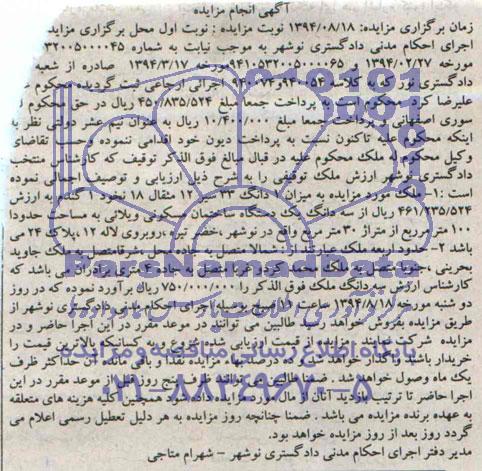 آگهی انجام مزایده
زمان برگزاری مزایده: ۱۳۹۴/۰۸/۱۸ نوبت مزایده : نوبت اول محل برگزاری مزایده
اجرای احکام مدنی دادگستری نوشهر به موجب نیابت به شماره ۳۲۰۰۵۰۰۰۰۴۵
مورخه ۱۳۹۴/۰۲/۲۷ و ۹۴۱۰۵۳۲۰۰۵۰۰۰۰۶۵ مورخه ۱۳۹۴/۳/۱۷ صادره از شعبه
دادگستری نور که به کلاسه اجرائی ارجاعی ثبت گردیده محکوم
علیرضا کرد محکوم است به پرداخت جمعا مبلغ ۴۵۰/۸۳۵/۵۲۴ ریال در حق محکوم
سوری اصفهانی و پرداخت جمعا مبلغ ۱۰/۴۰۰/۰۰۰ ریال به عنوان نیم عشر دولتی نظر به
اینکه محکوم علیه تاکنون نسبت به پرداخت دیون خود اقدامی ننموده و حسب تقاضای
وکیل محکوم له ملک محکوم علیه در قبال مبالغ فوق الذکر توقیف که کارشناس منتخب
دادگستری نوشهر ارزش ملک توقیفی را به شرح ذیل ارزیابی و توصیف اجمالی نموده
است :۱- ملک مورد مزایده به میزان ۱ دانگ ۲۳ سیر ۱۲ مثقال ۱۸ نخود ۱ گندم به ارزش
۴۶۱/۲۳۵/۵۲۴ ریال از سه دانگ یک دستگاه ساختمان مسکونی ویلائی به مساحت حدودا
۱۰۰ متر مربع از متراژ ۳۰ متر مربع واقع در نوشهر ،خضر تیره ،روبروی لاله ۱۲ ،پلاک ۲۴ می
باشد ۲- حدود اربعه ملک عبارتند از: شمالا متصل به جاده محل ،شرقا متصل به ملک جاوید
بحرینی ،جنوبا متصل به ملک محمد کردو غربا متصل به جاده ۴ متری برادران می باشد که
کارشناس ارزش سه دانگ ملک فوق الذکر را ۷۵۰/۰۰۰/۰۰۰ ریال برآورد نموده که در روز
دو شنبه مورخه ۱۳۹۴/۸/۱۸ ساعت ۱۱ صبح بوسیله اجرای احکام مدنی دادگستری نوشهر از
طریق مزایده بفروش خواهد رسید طالبین می توانند در موعد مقرر در این اجرا حاضر و در
مزایده شرکت نمایند مزایده از قیمت ارزیابی شده شروع و به کسانیکه بالاترین قیمت را
خریدار باشند واگذار خواهد شد ده درصد بهاء مزایده نقدا و باقی مانده آن حداکثر ظرف
یک ماه وصول خواهد شد . ضمنا طالبین می توانند ظرف پنج روز قبل از موعد مقرر در این
اجرا حاضر تا ترتیب بازدید آنان از مال مورد مزایده داده شود همچنین کلیه هزینه های متعلقه
به عهده برنده مزایده می باشد . ضمنا چنانچه روز مزایده به هر دلیل تعطیل رسمی اعلام می
گردد روز بعد از روز مزایده خواهد بود.
مدیر دفتر اجرای احکام مدنی دادگستری نوشهر - شهرام متاجی
ParsNamadData
مرکز فرآوری اطلاعات پارس نماد داده ها
پایگاه اطلاع رسانی مناقصه و مزایده
۰۲۱-۸۸۳۴۹۶۷۰-۵